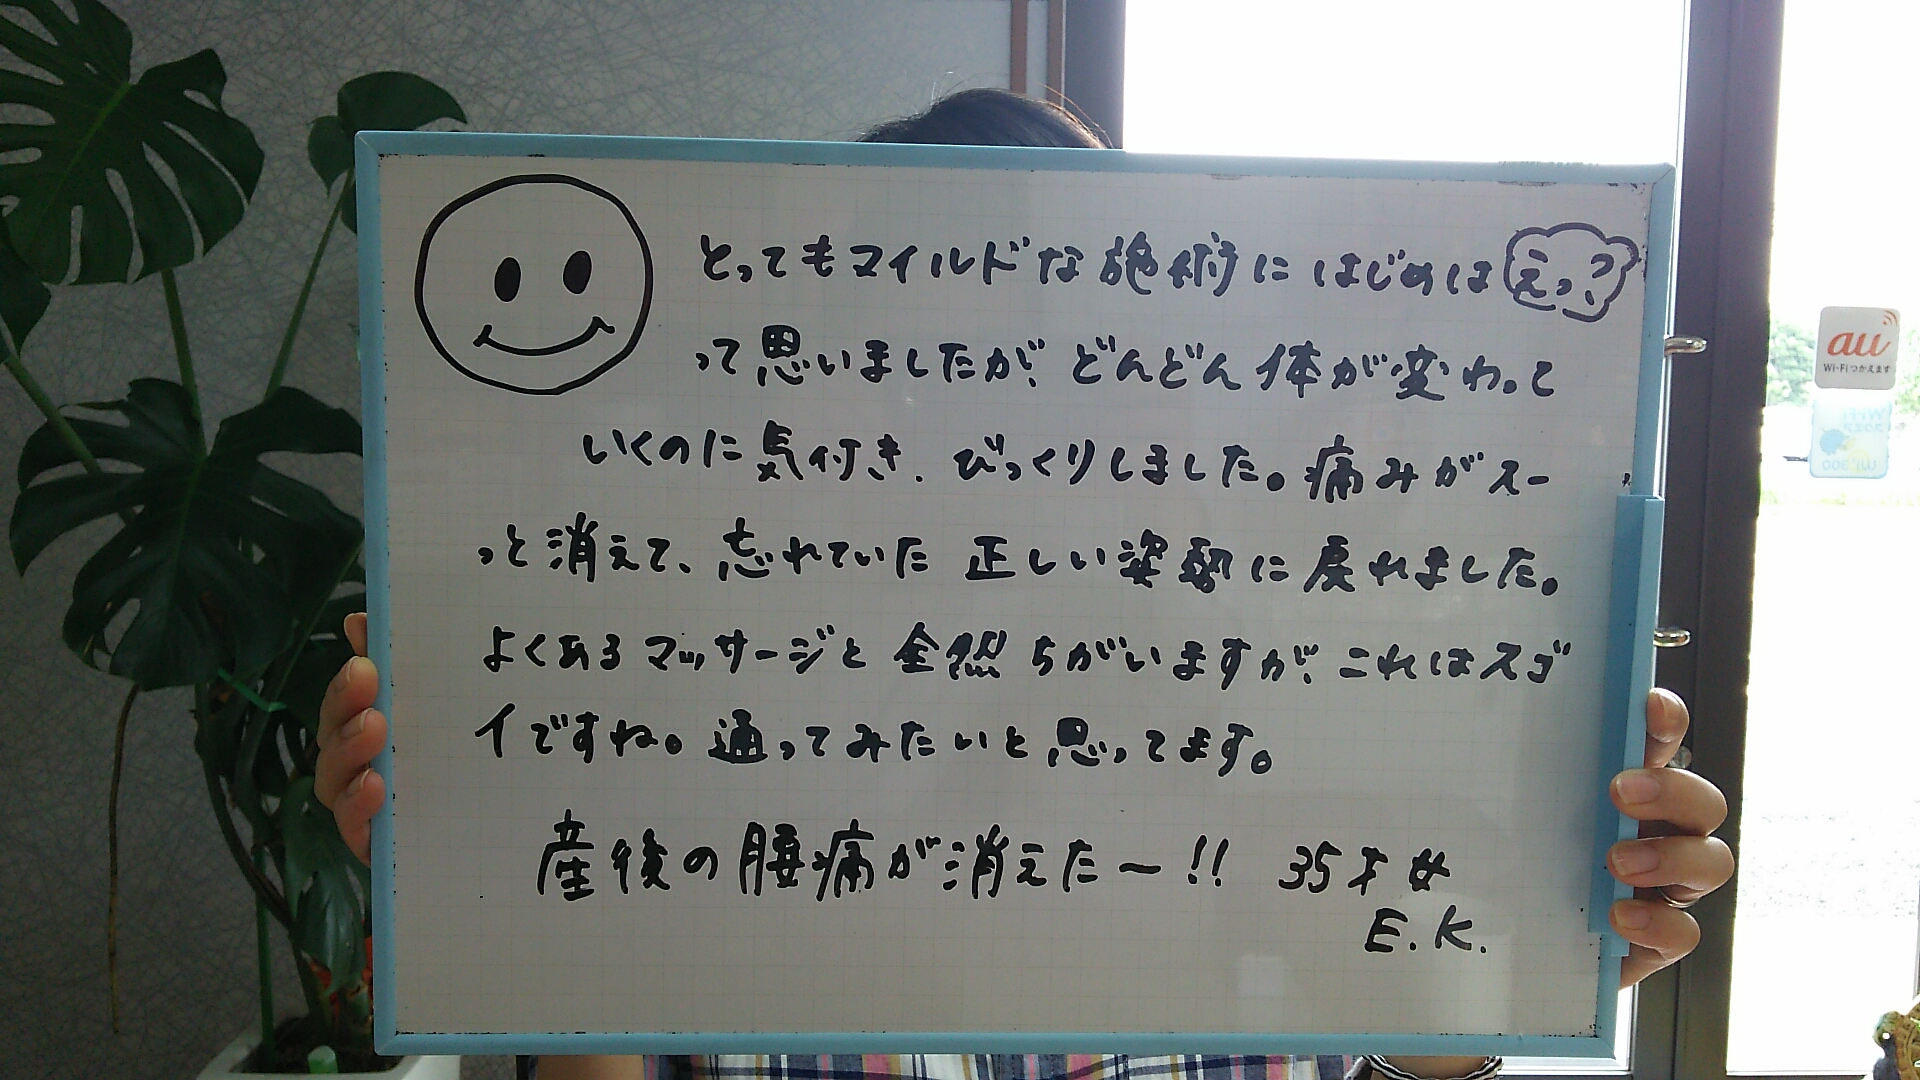 とってもマイルドな施術にはじめはえっ?
って思いましたが、どんどん体が変わって
いくのに気付き、びっくりしました。痛みがスー
っと消えて、忘れていた正しい姿勢に戻れました。
よくあるマッサージと全然ちがいますが、これはスゴ
イですね。通ってみたいと思ってます。
産後の腰痛が消えたー!! 35才女
E.K.
au
Wi-Fiつかえます